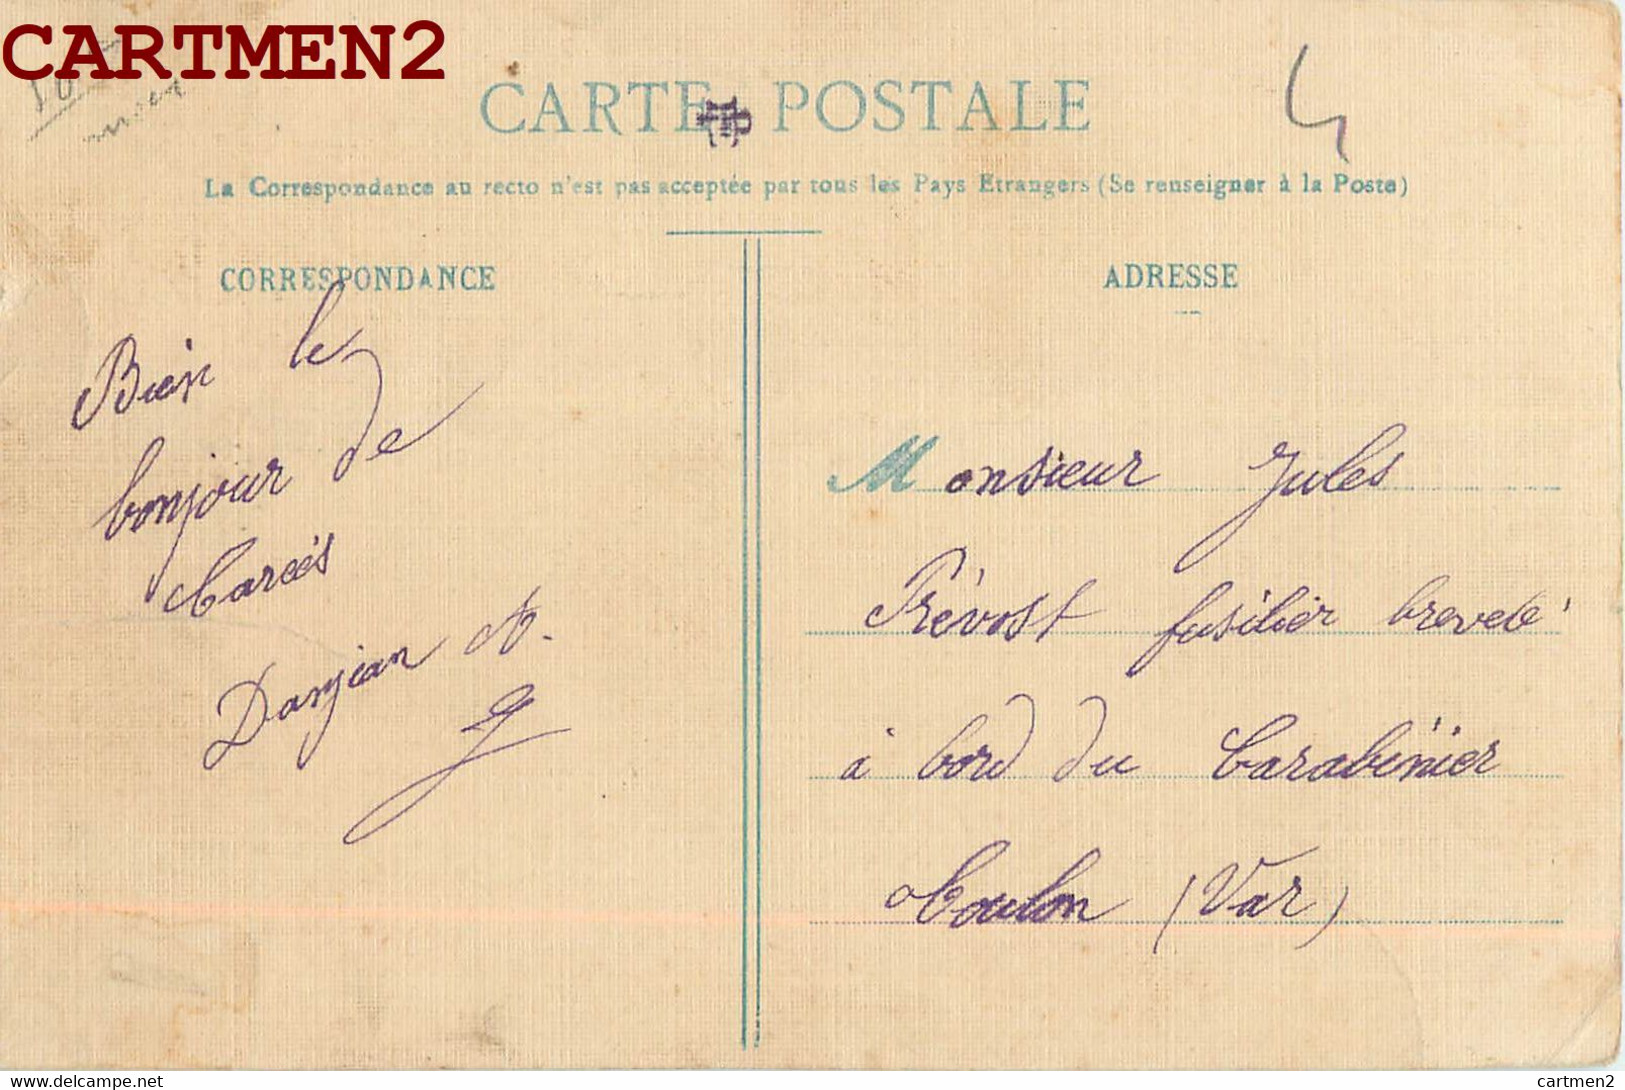 CARTMEN2
10
CARTE POSTALE
4
La Correspondance au recto n'est pas acceptée par tous les Pays Etrangers (Se renseigner à la Poste)
CORRESPONDANCE
Bien le
bonjour de
Carcés
Danjean A.
ADRESSE
Monsieur Jules
Prévost fusilier breveté
à bord du Carabinier
Toulon (Var)
delcampe.net
cartmen2